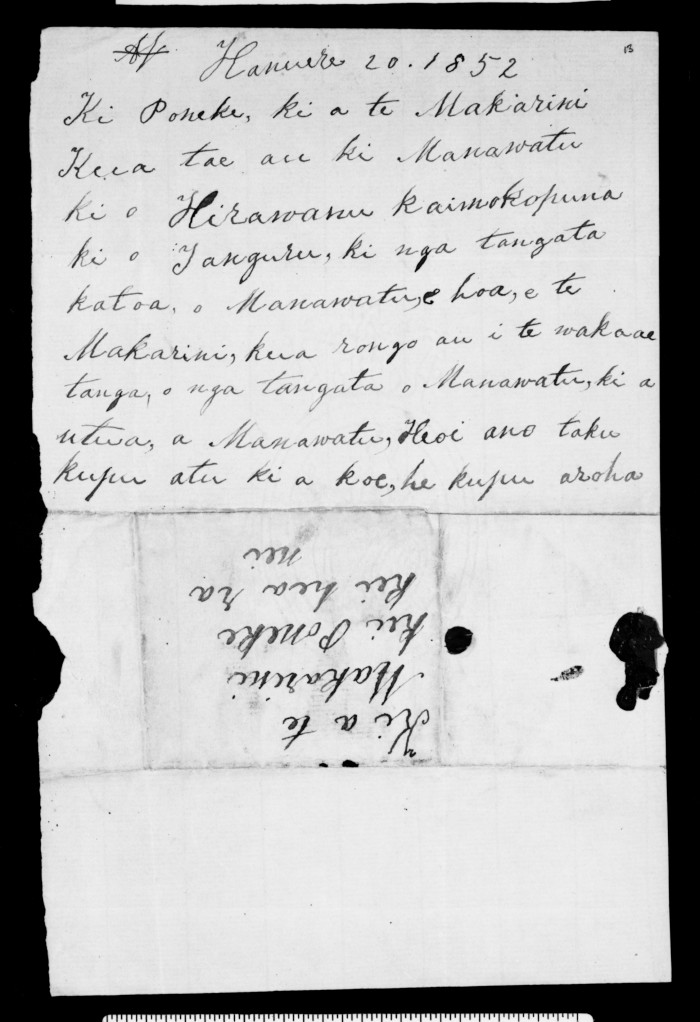 Hanuere 20. 1852
13
Ki Poneke, ki a te Makarini
Kua tae au ki Manawatu
ki o Hirawanu kaimokopuna
ki o Tanguru, ki nga tangata
katoa, o Manawatu, e hoa, e te
Makarini, kua rongo au i te wakaae
tanga, o nga tangata o Manawatu, ki a
utua, a Manawatu, Heoi ano taku
kupu atu ki a koe, he kupu aroha
Ki a te
Makarini
kei Poneke
kei hea ra
nei